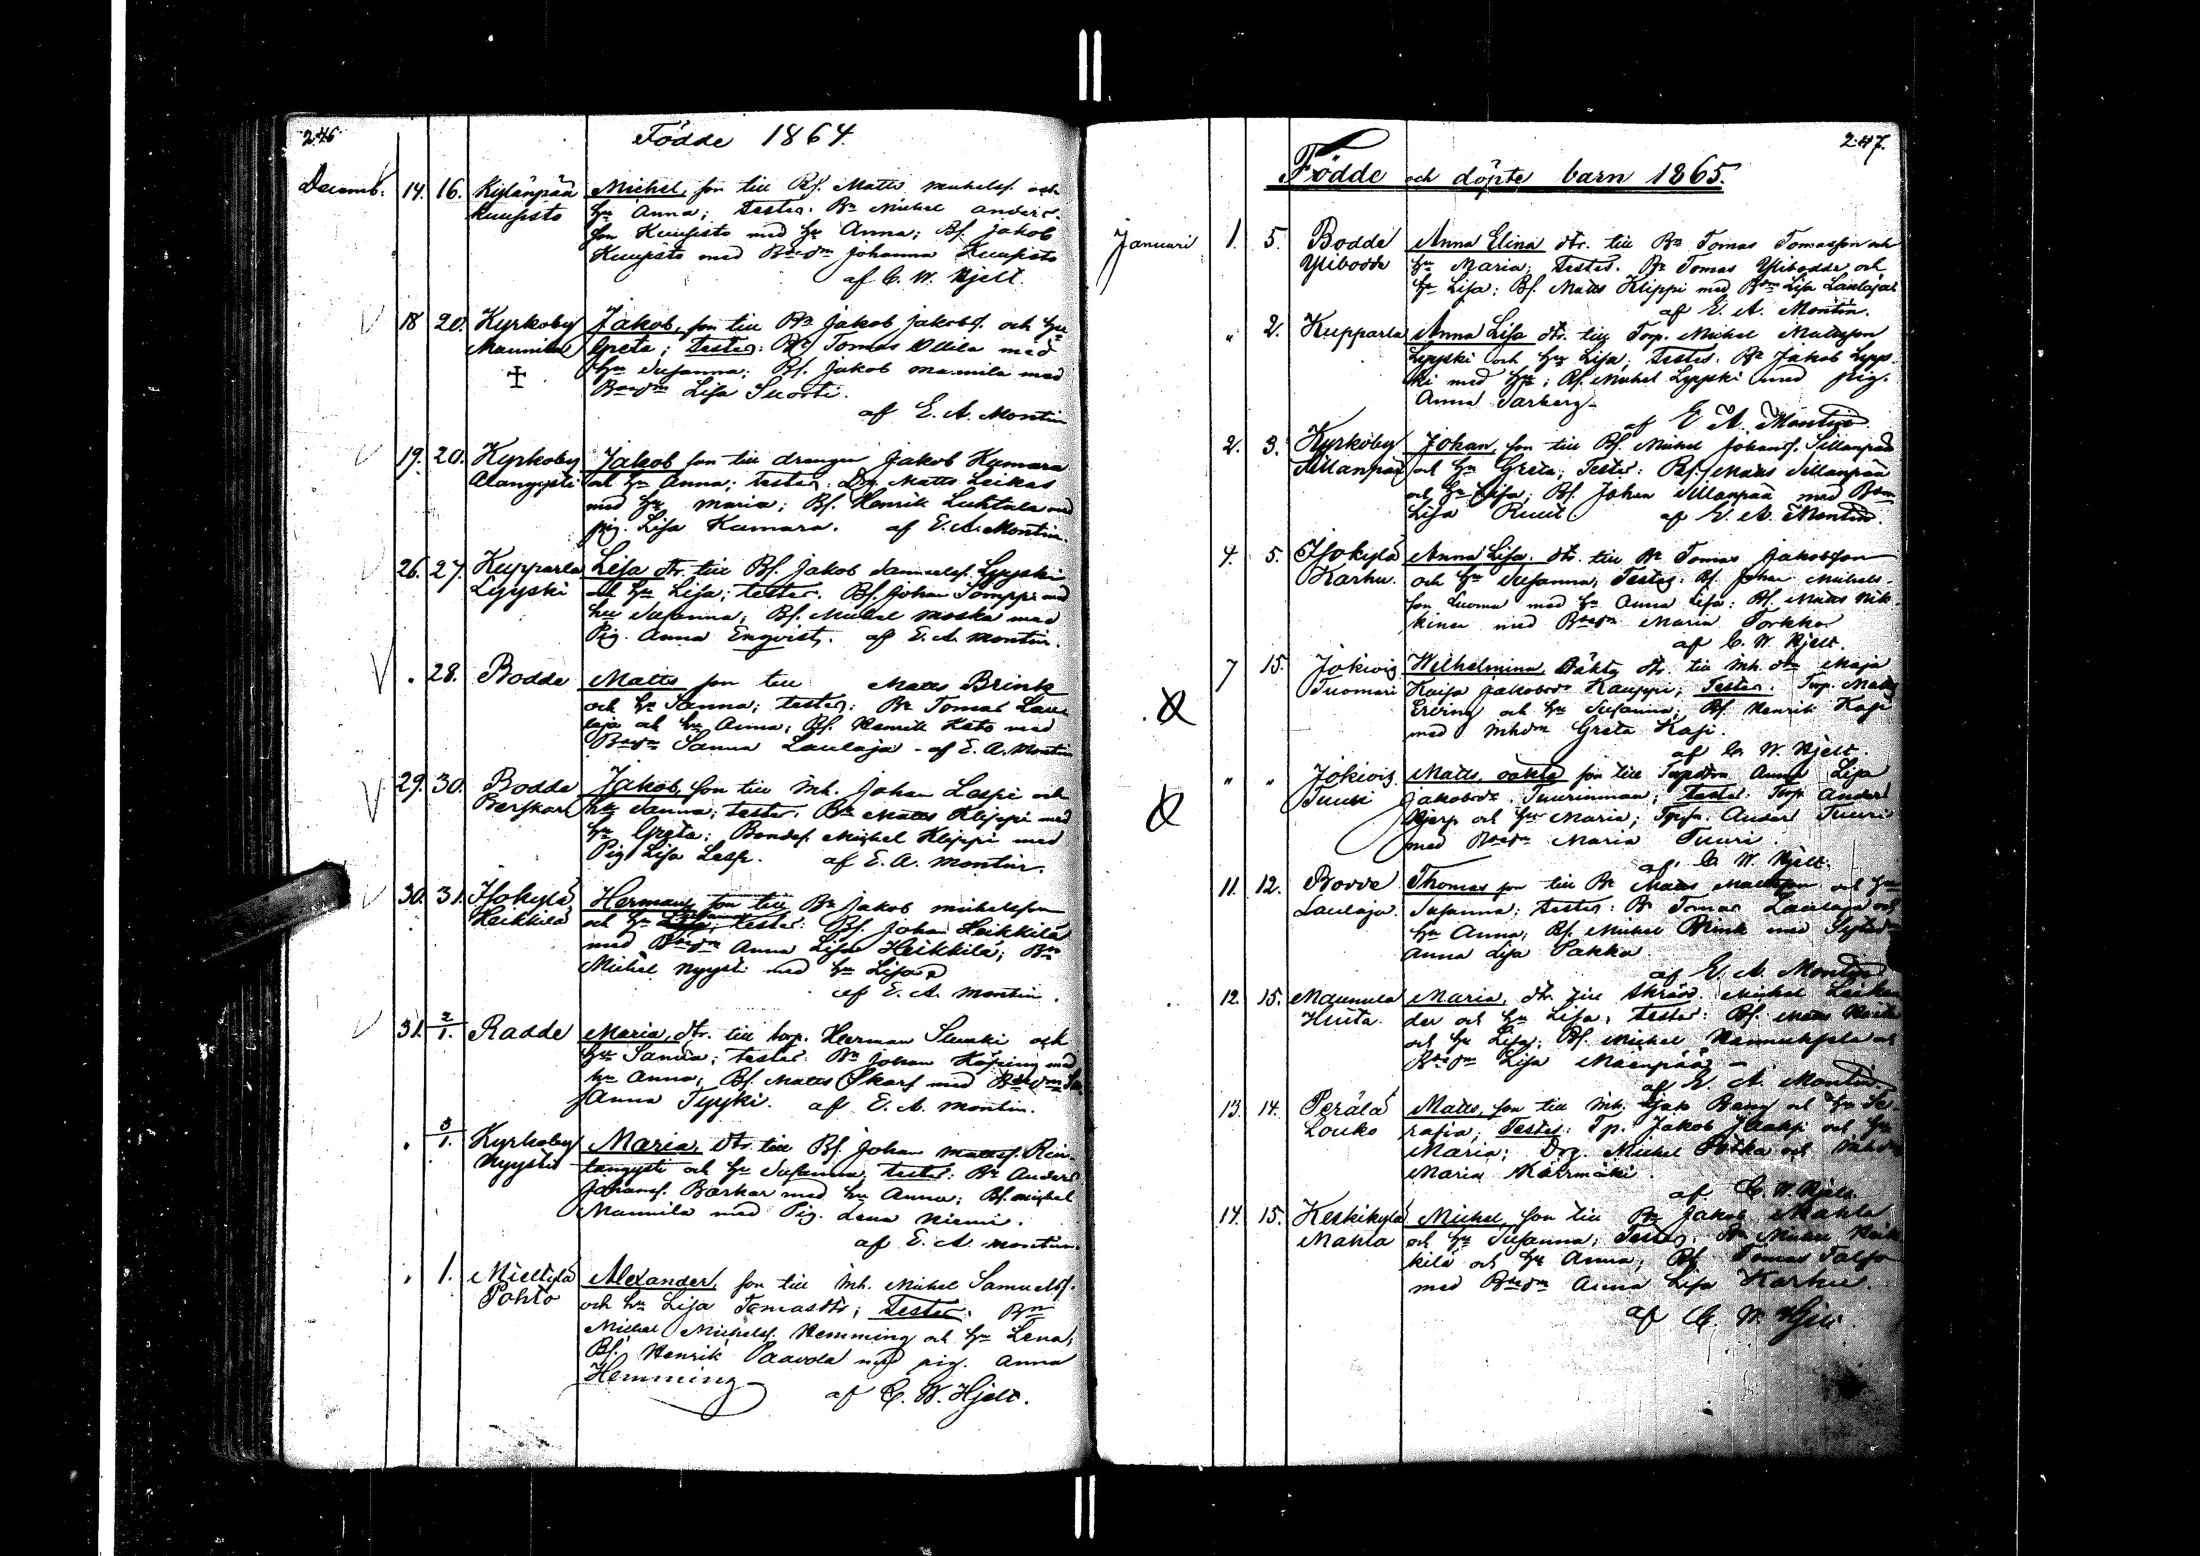 246
Födde 1864.
Decemb. 14. 16. Kylänpää Michel, son till Bs. Matts Michelss. och
Kuusisto hu Anna; testes: Bn Michel Anders-
son Kuusisto med hu Anna; Bs. Jakob
Kuusisto med Bondn Johanna Kuusisto
af C. W. Hjelt.
18 20. Kyrkoby Jakob, son till Bn Jakob Jakobs. och hu
Mannila Greta; testes: Bn Tomas Ollila med
hu Susanna; Bs. Jakob Mannila med
Lisa Suorti.
af E. A. Montin
19. 20. Kyrkoby Jakob son till drängen Jakob Kamara
Alangysti och hu Anna; testes: Dr. Matts Leikas
med hu Maria; Bs. Henrik Luhtala med
pig. Lisa Kamara. af E. A. Montin.
26. 27. Kupparla Lisa dtr. till Bs. Jakob Samuelss. Lyyski
Lyyski och hu Lisa; testes. Bs. Johan Tomppi med
hu Susanna; Bs. Michel Moska med
Pig. Anna Enqvist. af E. A. Montin.
. 28. Bodde Matts son till Matts Brink
och hu Sanna; testes: Bn Tomas Lau-
laja och hu Anna; Bs. Henrik Kato med
Sanna Laulaja - af E. A. Montin
29. 30. Bodde Jakob, son till Inh. Johan Laspi och
hu Sanna; testes: Bn Matts Klippi med
hu Greta; Bondes. Michel Klippi med
Pig Lisa af E. A. Montin.
30. 31. Isokylä Herman, son till Bn Jakob Michelsson
Heikkilä och hu testes: Bs. Johan Heikkilä
med Anna Lisa Heikkilä; Bn
Michel Nyysti med hu Lisa
af E. A. Montin.
31. 2/1. Radde Maria, dtr. till torp. Herman och
hu Sanna; testes Bn Johan Köping med
hu Anna, Bs. Matts Skarf med
Anna Tyyki. af E. A. Montin.
. 3/1. Kyrkoby Maria, dtr. till Bs. Johan Mattss. Rin-
Nyysti tangysti och hu Susanna; testes: Bn Anders
Johanss. Barkar med hu Anna; Bs. Michel
Mannila med Pig. Lena Niemi.
af E. A. Montin.
. 1. Miettylä Alexander, son till Inh. Michel Samuelss.
Pohto och hu Lisa Tomasdtr; Testes: Bn
Michel Michelss. Hemming och hu Lena;
Bs. Henrik Paavola med pig. Anna
Hemming
af C. W. Hjelt.
247.
Födde och döpte barn 1865.
Januari 1. 5. Bodde Anna Elina dtr. till Bn Tomas Tomasson och
Ylibodde hu Maria; testes. Bn Tomas Ylibodde och
hu Lisa; Bs. Matts Klippi med Lisa Laulaja
af E. A. Montin.
" 2. Kupparla Anna Lisa dtr. till Torp. Michel Mattsson
Lyyski och hu Lisa; testes. Bn Jakob Lyys-
ki med hu; Bs. Michel Lyyski med pig.
Anna Sarberg -
af E. A. Montin.
2. 3. Kyrkoby Johan, son till Bs. Michel Johanss. Sillanpää
Sillanpää och hu Greta; Testes: Bs. Matts Sillanpää
och hu Lisa; Bs. Johan Sillanpää med
Lisa Ruut af E. A. Montin.
4. 5. Isokylä Anna Lisa. dtr. till Bn Tomas Jakobsson
Karhu. och hu Susanna; Testes: Bs. Johan Michels-
son Luoma med hu Anna Lisa; Bs. Matts Nik-
kinen med Maria Torkko
af C. W. Hjelt.
7 15. Jokivig Wilhelmina, oäkta dtr. till Inh. dtr Maja
Tuomari Kaisa Jakobsdr Kauppi; Testes: Torp. Matts
Erving och hu Susanna; Bs. Henrik Kasi
med Inhdr Greta Kasi.
af C. W. Hjelt.
" " Jokivig Matts, oäkta son till Anna Lisa
Tuuri Jakobsdr Tuurinmaa; testes: Torp. Anders
och hu Maria; Anders Tuuri
med Maria Tuuri.
af C. W. Hjelt.
11. 12. Bodde Thomas son till Bn Matts Mattsson och hu
Laulaja. Susanna; testes: Bn Tomas Laulaja och
hu Anna; Bs. Michel Brink med
Anna Lisa Pakka.
af E. A. Montin
12. 15. Maunula Maria, dtr. till skräd. Michel
Huuta. der och hu Lisa; testes: Bs. Matts
och hu Lisa; Bs. Michel
Lisa Mäenpää -
af E. A. Montin.
13. 14. Perälä Matts, son till Inh. och hu Se-
Louko rafia; Testes: Tp. Jakob och hu
Maria; Drg. Michel Potka och
Maria Karrmäki.
af C. W. Hjelt
14. 15. Keskikylä Michel, son till Bn Jakob Mahla
Mahla och hu Susanna; Testes: Bn Michel Heik-
kilä och hu Anna; Bs. Tomas
med Anna Lisa Karhu.
af C. W. Hjelt.